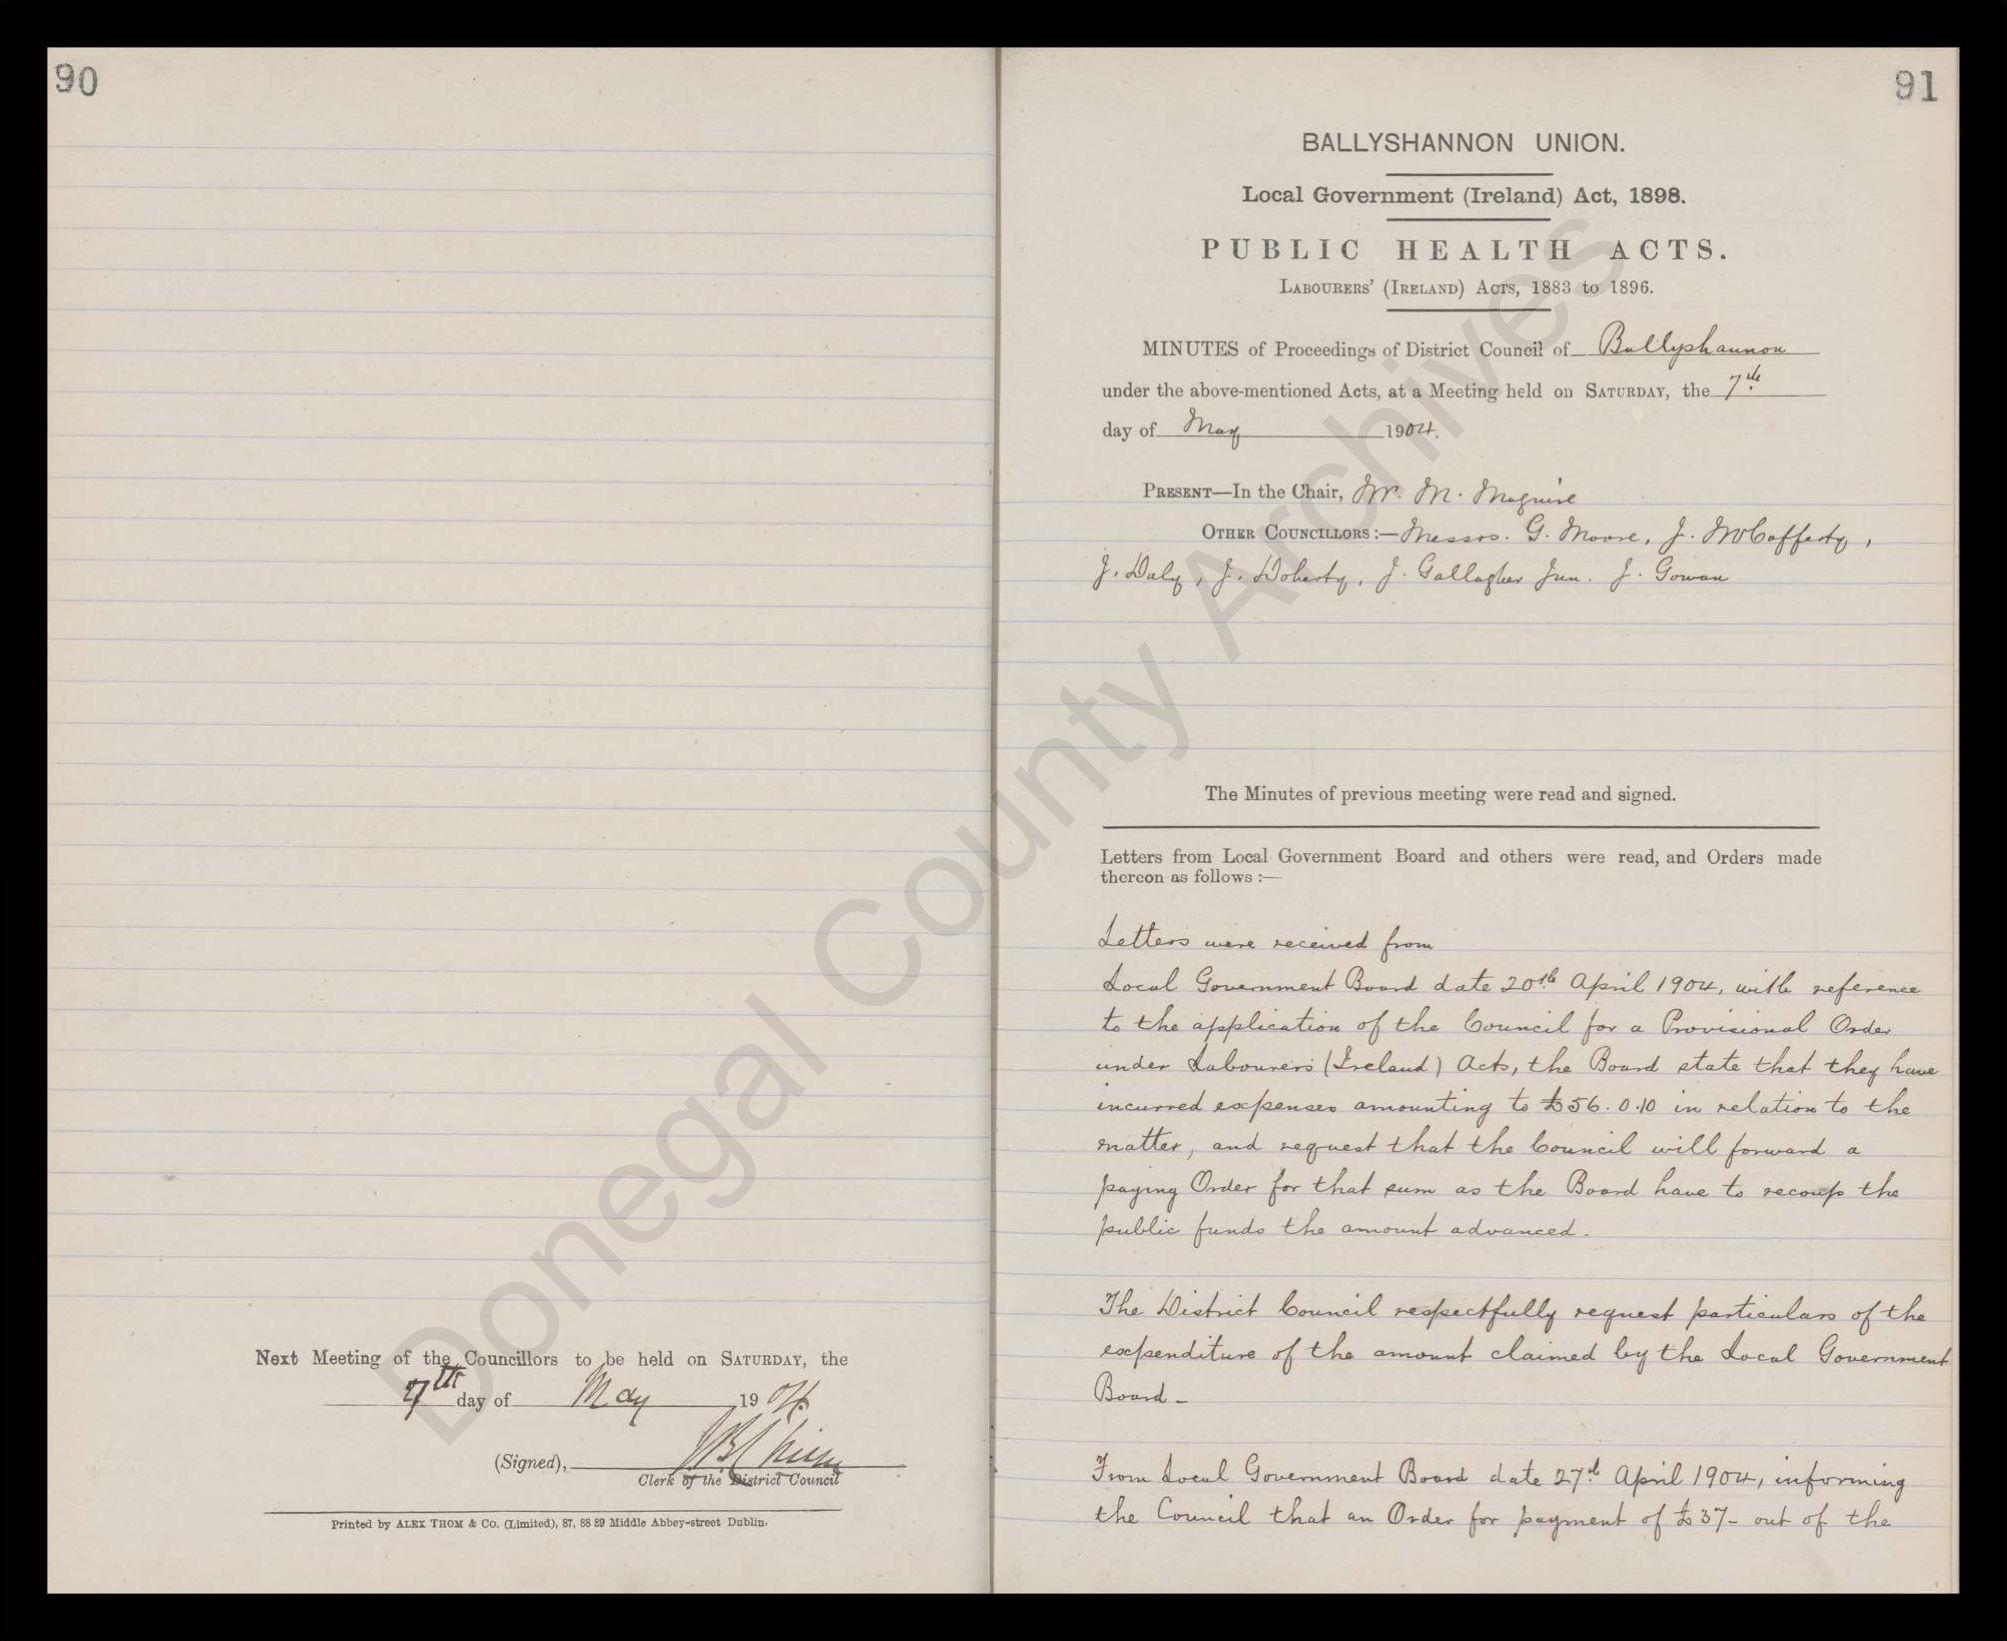 90
Next Meeting of the Councillors to be held on SATURDAY, the
7th day of May 1904
(Signed),
Clerk of the District Council
Printed by ALEX THOM & Co. (Limited), 87, 88 89 Middle Abbey-street Dublin.
91
BALLYSHANNON UNION.
Local Government (Ireland) Act, 1898.
PUBLIC HEALTH ACTS.
LABOURERS' (IRELAND) ACTS, 1883 to 1896.
MINUTES of Proceedings of District Council of Ballyshannon
under the above-mentioned Acts, at a Meeting held on SATURDAY, the 7th
day of May 1904.
PRESENT—In the Chair, Mr. M. Maguire
OTHER COUNCILLORS:—Messrs. G. Moore, J. McCafferty,
J. Daly, J. Doherty, J. Gallagher Jun. J. Gowan
The Minutes of previous meeting were read and signed.
Letters from Local Government Board and others were read, and Orders made
thereon as follows:—
Letters were received from
Local Government Board date 20th April 1904, with reference
to the application of the Council for a Provisional Order
under Labourers (Ireland) Acts, the Board state that they have
incurred expenses amounting to £56.0.10 in relation to the
matter, and request that the Council will forward a
paying Order for that sum as the Board have to recoup the
public funds the amount advanced.
The District Council respectfully request particulars of the
expenditure of the amount claimed by the Local Government
Board -
From Local Government Board date 27th April 1904, informing
the Council that an Order for payment of £37- out of the
Donegal County Archives